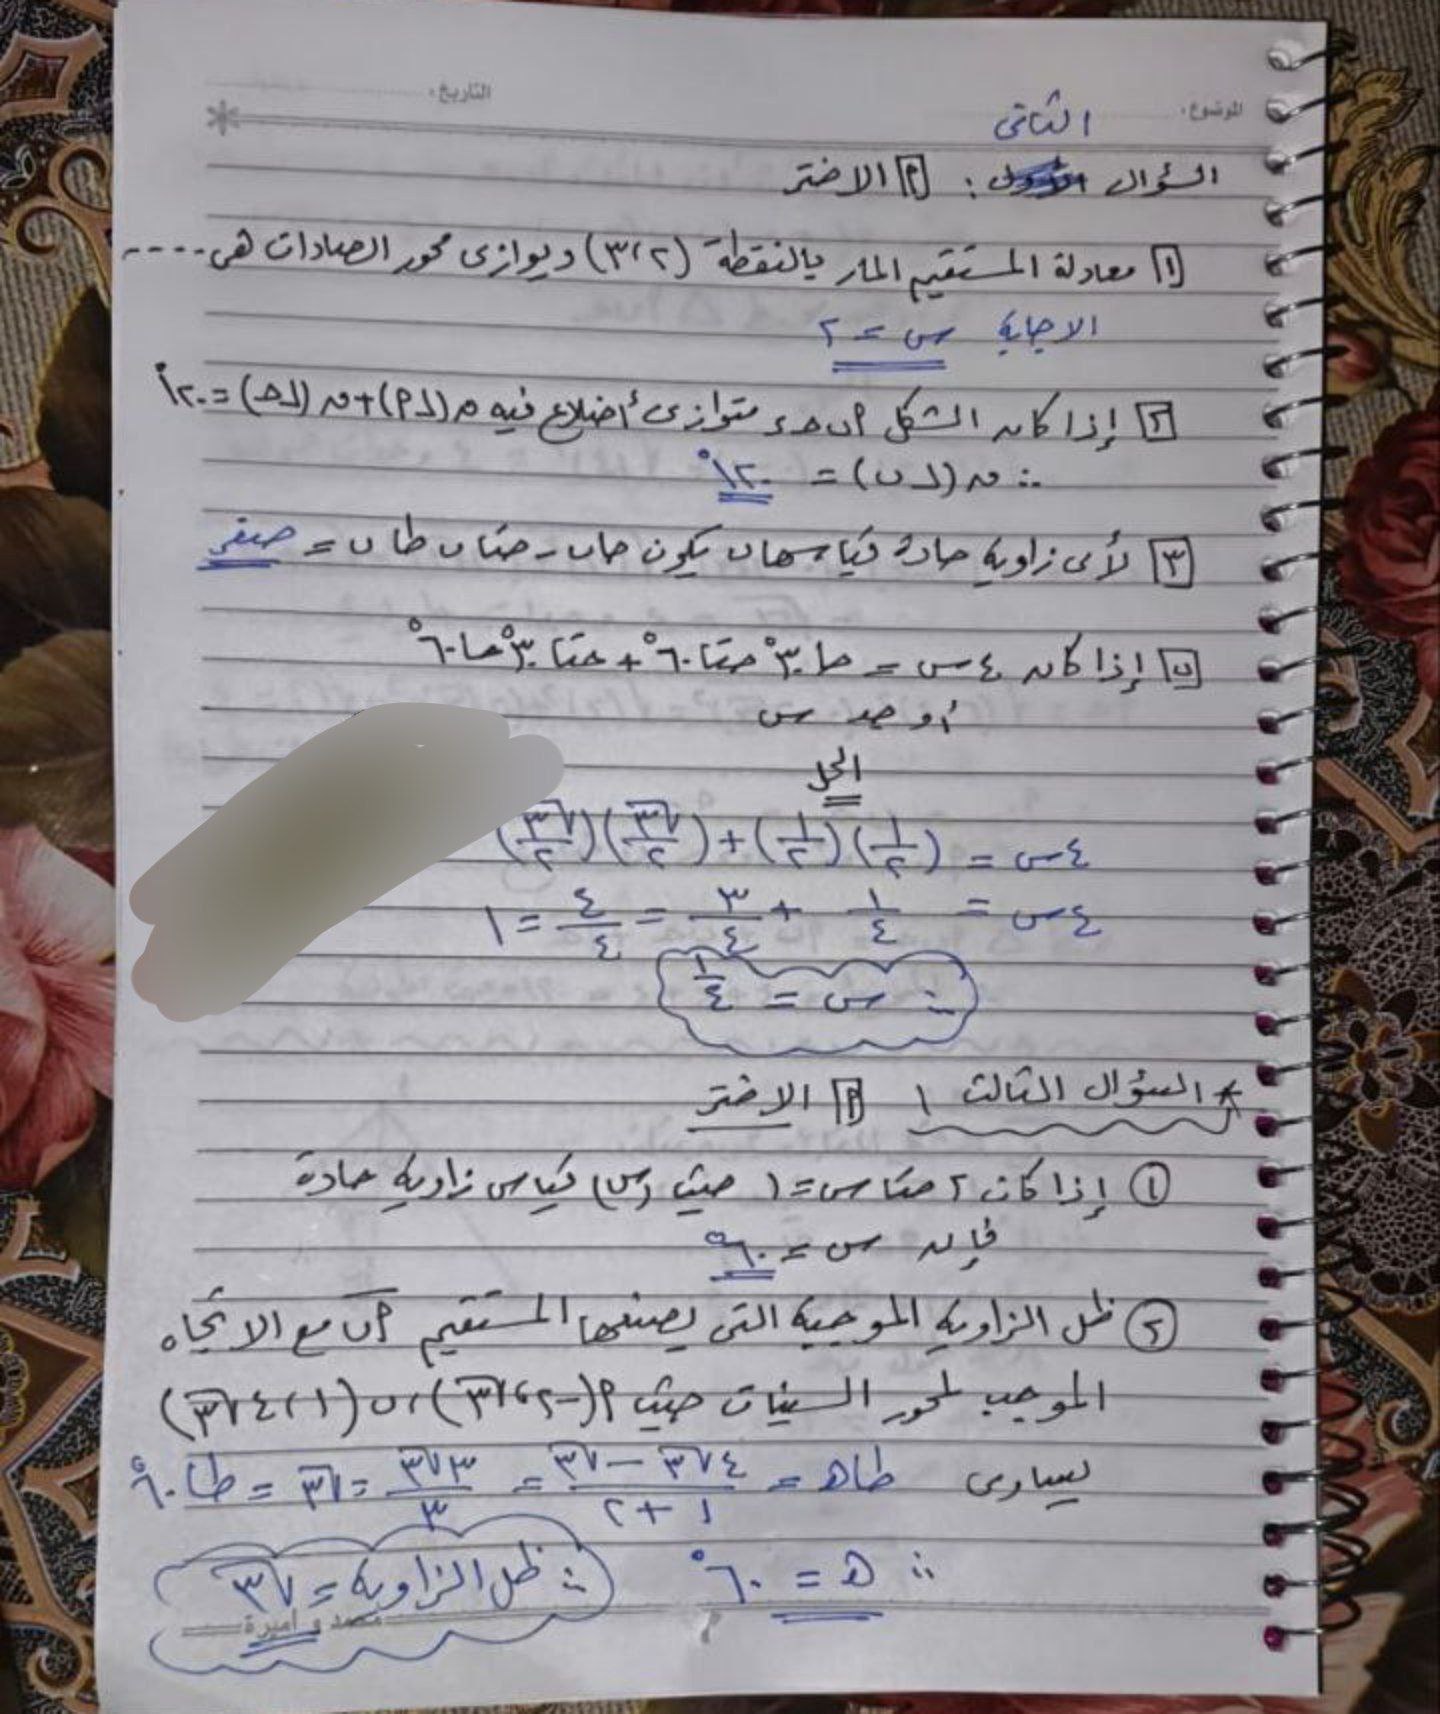 الموضوع: التاريخ:
الثانى
السؤال الأول : [أ] الاختر
[١] معادلة المستقيم المار بالنقطة (٢،٣) ويوازى محور الصادات هى ----
الاجابة س = ٢
[٢] إذا كان الشكل أ ب ح د متوازى أضلاع فيه ق(∠أ) + ق(∠ح) = ١٢٠°
∴ ق(∠ب) = ١٢٠°
[٣] لأى زاوية حادة قياسها ب يكون حاب - حتاب طاب = صفر
[ب] إذا كان ٤س = حا٣٠° حتا٦٠° + حتا٣٠° حا٦٠°
أوجد س
الحل
٤س = (١/٢)(١/٢) + (√٣/٢)(√٣/٢)
٤س = ١/٤ + ٣/٤ = ٤/٤ = ١
∴ س = ١/٤
* السؤال الثالث ١ [أ] الاختر
(١) إذا كانت ٢ حتاس = ١ حيث (س) قياس زاوية حادة
فإن س = ٦٠°
(٢) ظل الزاوية الموجبة التى يصنعها المستقيم أب مع الاتجاه
الموجب لمحور السينات حيث أ(-٢،√٣)، ب(١،٤√٣)
يساوى طاه = (٤√٣ - √٣)/(١+٢) = ٣√٣/٣ = √٣ = طا٦٠°
∴ ه = ٦٠° ∴ ظل الزاوية = √٣
محمد و اميرة